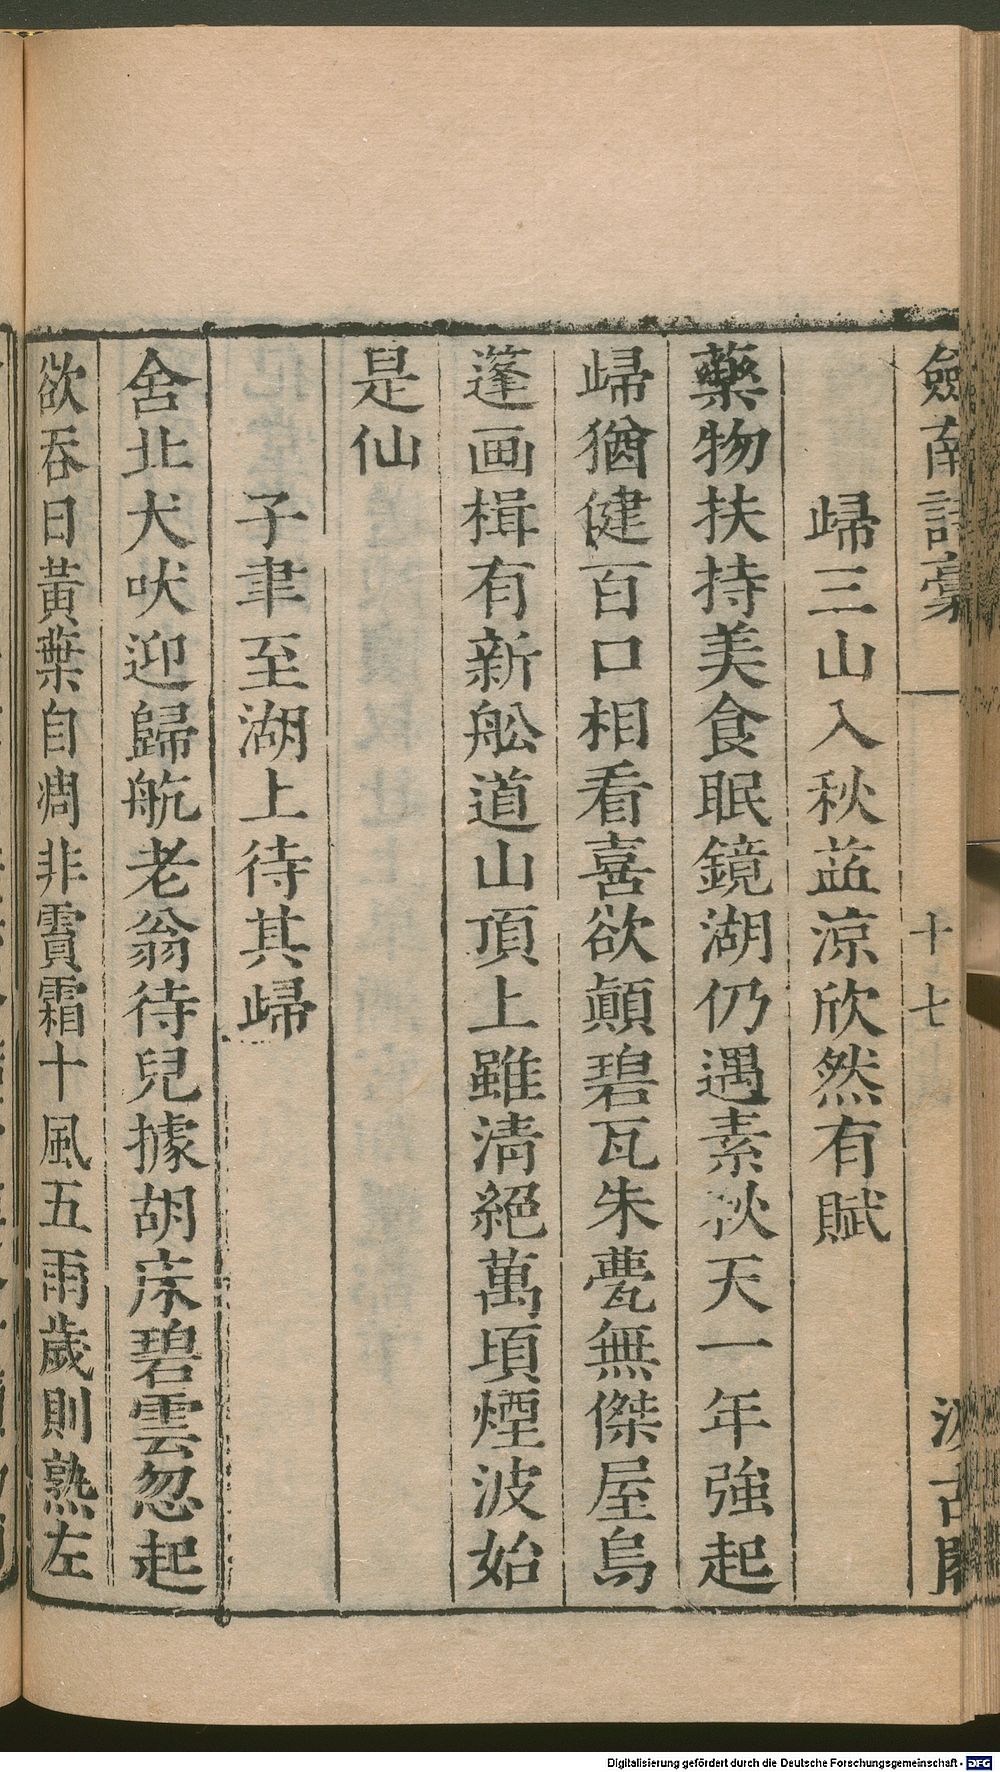 劒南詩稾
十七
汲古閣
歸三山入秋益涼欣然有賦
藥物扶持美食眠鏡湖仍遇素秋天一年強起
歸猶健百口相看喜欲顛碧瓦朱甍無傑屋烏
蓬画楫有新舩道山頂上雖清絕萬頃煙波始
是仙
子聿至湖上待其歸
舍北犬吠迎歸航老翁待兒據胡床碧雲忽起
欲吞日黃葉自凋非霣霜十風五雨歲則熟左
Digitalisierung gefördert durch die Deutsche Forschungsgemeinschaft - DFG